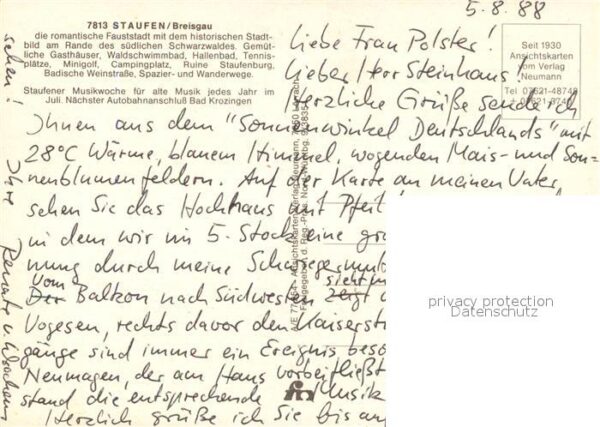 7813 STAUFEN/Breisgau
die romantische Fauststadt mit dem historischen Stadt-
bild am Rande des südlichen Schwarzwaldes. Gemüt-
liche Gasthäuser, Waldschwimmbad, Hallenbad, Tennis-
plätze, Minigolf, Campingplatz, Ruine Staufenburg,
Badische Weinstraße, Spazier- und Wanderwege.
Staufener Musikwoche für alte Musik jedes Jahr im
Juli. Nächster Autobahnanschluß Bad Krozingen
5.8.88
Seit 1930
Ansichtskarten
vom Verlag
Neumann
Tel 07621-48748
Liebe Frau Polster!
Lieber Herr Steinhaus!
Herzliche Grüße sende ich
Ihnen aus dem "Sonnenwinkel Deutschlands" mit
28°C Wärme, blauem Himmel, wogenden Mais- und Son-
nenblumenfeldern. Auf der Karte an meinen Vater
sehen Sie das Hochhaus mit Pfeil
in dem wir im 5. Stock eine
nung durch meine
Vom
Der Balkon nach Südwesten zeigt
sieht
Vogesen, rechts davor den Kaiserst
gänge sind immer ein Ereignis
Neumagen, der am Haus vorbeifließt
stand die entsprechende Musik
Herzlich grüße ich Sie bis
sehen! Ihre Renate v.
privacy protection
Datenschutz